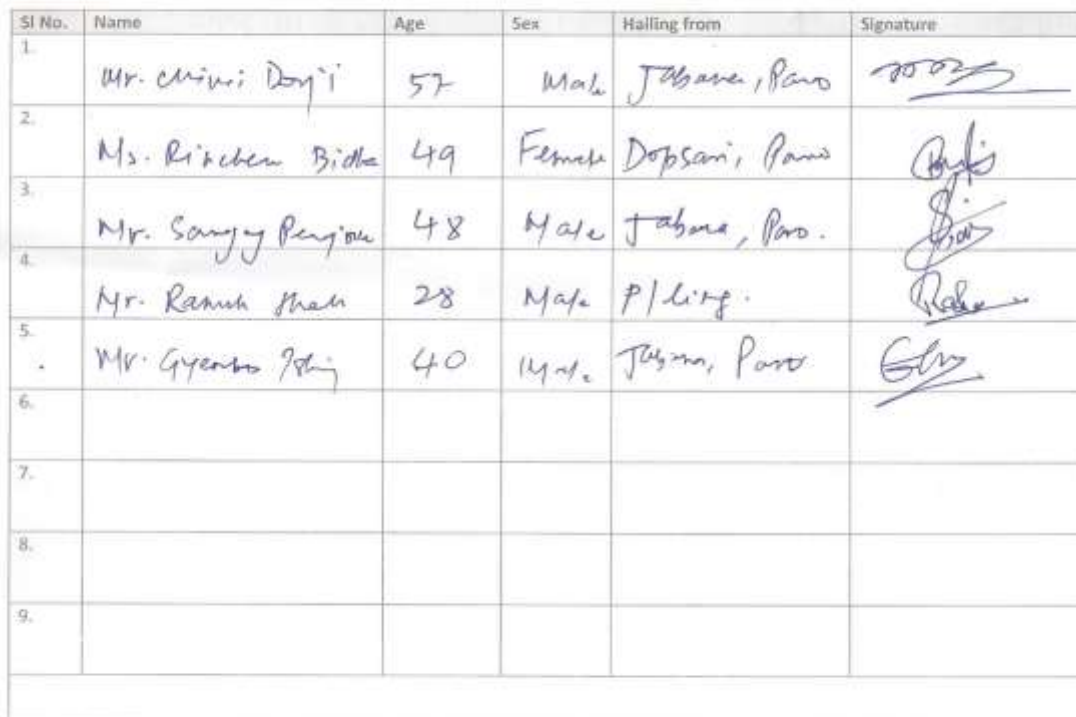 Sl No. Name Age Sex Hailing from Signature
1. Mr. Chimi Dorji 57 Male Jabana, Paro
2. Ms. Rinchen Bidha 49 Female Dopsari, Paro
3. Mr. Sangay Penjore 48 Male Jabana, Paro.
4. Mr. 28 Male P/ling.
5. Mr. 40 Male Jabana, Paro
6.
7.
8.
9.